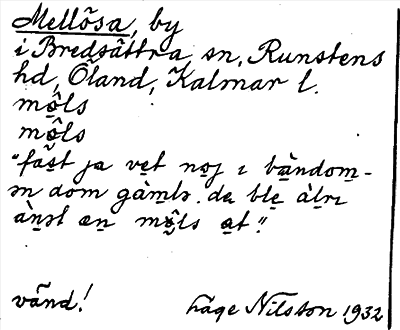 Mellösa, by
i Bredsättra sn, Runstens
hd, Öland, Kalmar l.
mø̂ls
mø̂ls
"fāst ja vet noj ı bàndom-
ən dom gàmlə. də ble àlrı
ànət æn mø̂ls at."
vänd! Håge Nilsson 1932